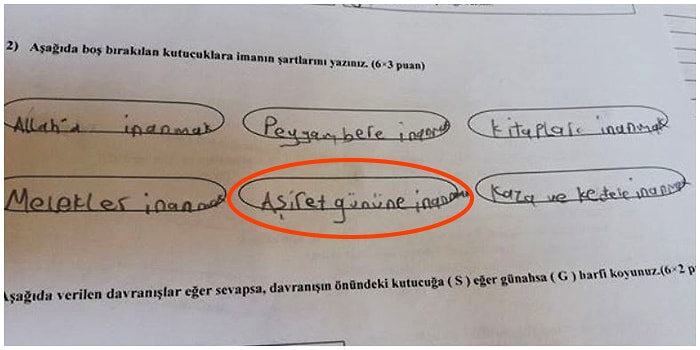 2) Aşağıda boş bırakılan kutucuklara imanın şartlarını yazınız. (6×3 puan)
Allah'a inanmak Peygambere inanmak Kitaplara inanmak
Melekler inanmak Aşiret gününe inanmak Kaza ve kedele inanmak
Aşağıda verilen davranışlar eğer sevapsa, davranışın önündeki kutucuğa ( S ) eğer günahsa ( G ) harfi koyunuz.(6×2 p